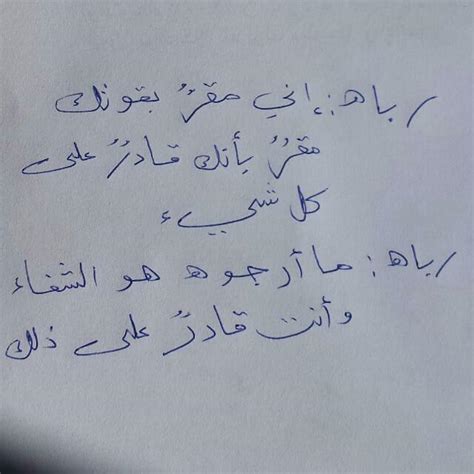 رباه: إني مقرٌ بقوتك
مقرٌ بأنك قادرٌ على
كل شيء
رباه: ما أرجوه هو الشفاء
وأنت قادرٌ على ذلك